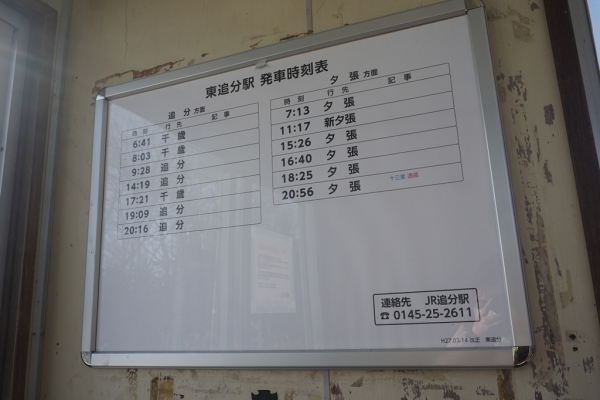 東追分駅 発車時刻表
追 分 方面
時 刻 行 先 記 事
6:41 千 歳
8:03 千 歳
9:28 追 分
14:19 追 分
17:21 千 歳
19:09 追 分
20:16 追 分
夕 張 方面
時 刻 行 先 記 事
7:13 夕 張
11:17 新夕張
15:26 夕 張
16:40 夕 張
18:25 夕 張
20:56 夕 張 十三里 通過
連絡先 JR追分駅
☎ 0145-25-2611
H27.03/14 改正 東追分